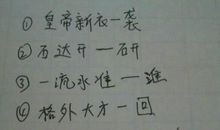 ① 皇帝新衣一袭
② 石达开一研
③ 一流水准一谁
④ 格外大方一回